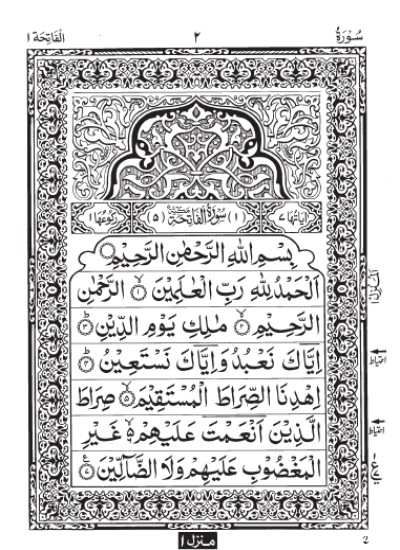 سُوْرَةُ
٢
الْفَاتِحَة ١
اٰيَاتُهَا ٧
(١) سُوْرَةُ الْفَاتِحَةِ مَكِّيَّةٌ (٥)
رُكُوْعُهَا ١
بِسْمِ اللهِ الرَّحْمٰنِ الرَّحِيْمِ
اَلْحَمْدُ لِلّٰهِ رَبِّ الْعٰلَمِيْنَ ۝١ الرَّحْمٰنِ
الرَّحِيْمِ ۝٢ مٰلِكِ يَوْمِ الدِّيْنِ ۝٣
اِيَّاكَ نَعْبُدُ وَاِيَّاكَ نَسْتَعِيْنُ ۝٤
اِهْدِنَا الصِّرَاطَ الْمُسْتَقِيْمَ ۝٥ صِرَاطَ
الَّذِيْنَ اَنْعَمْتَ عَلَيْهِمْ ۝٦ غَيْرِ
الْمَغْضُوْبِ عَلَيْهِمْ وَلَا الضَّآلِّيْنَ ۝٧
اَلْمَنْزِل ١
احتياط
احتياط
منزل ١
2